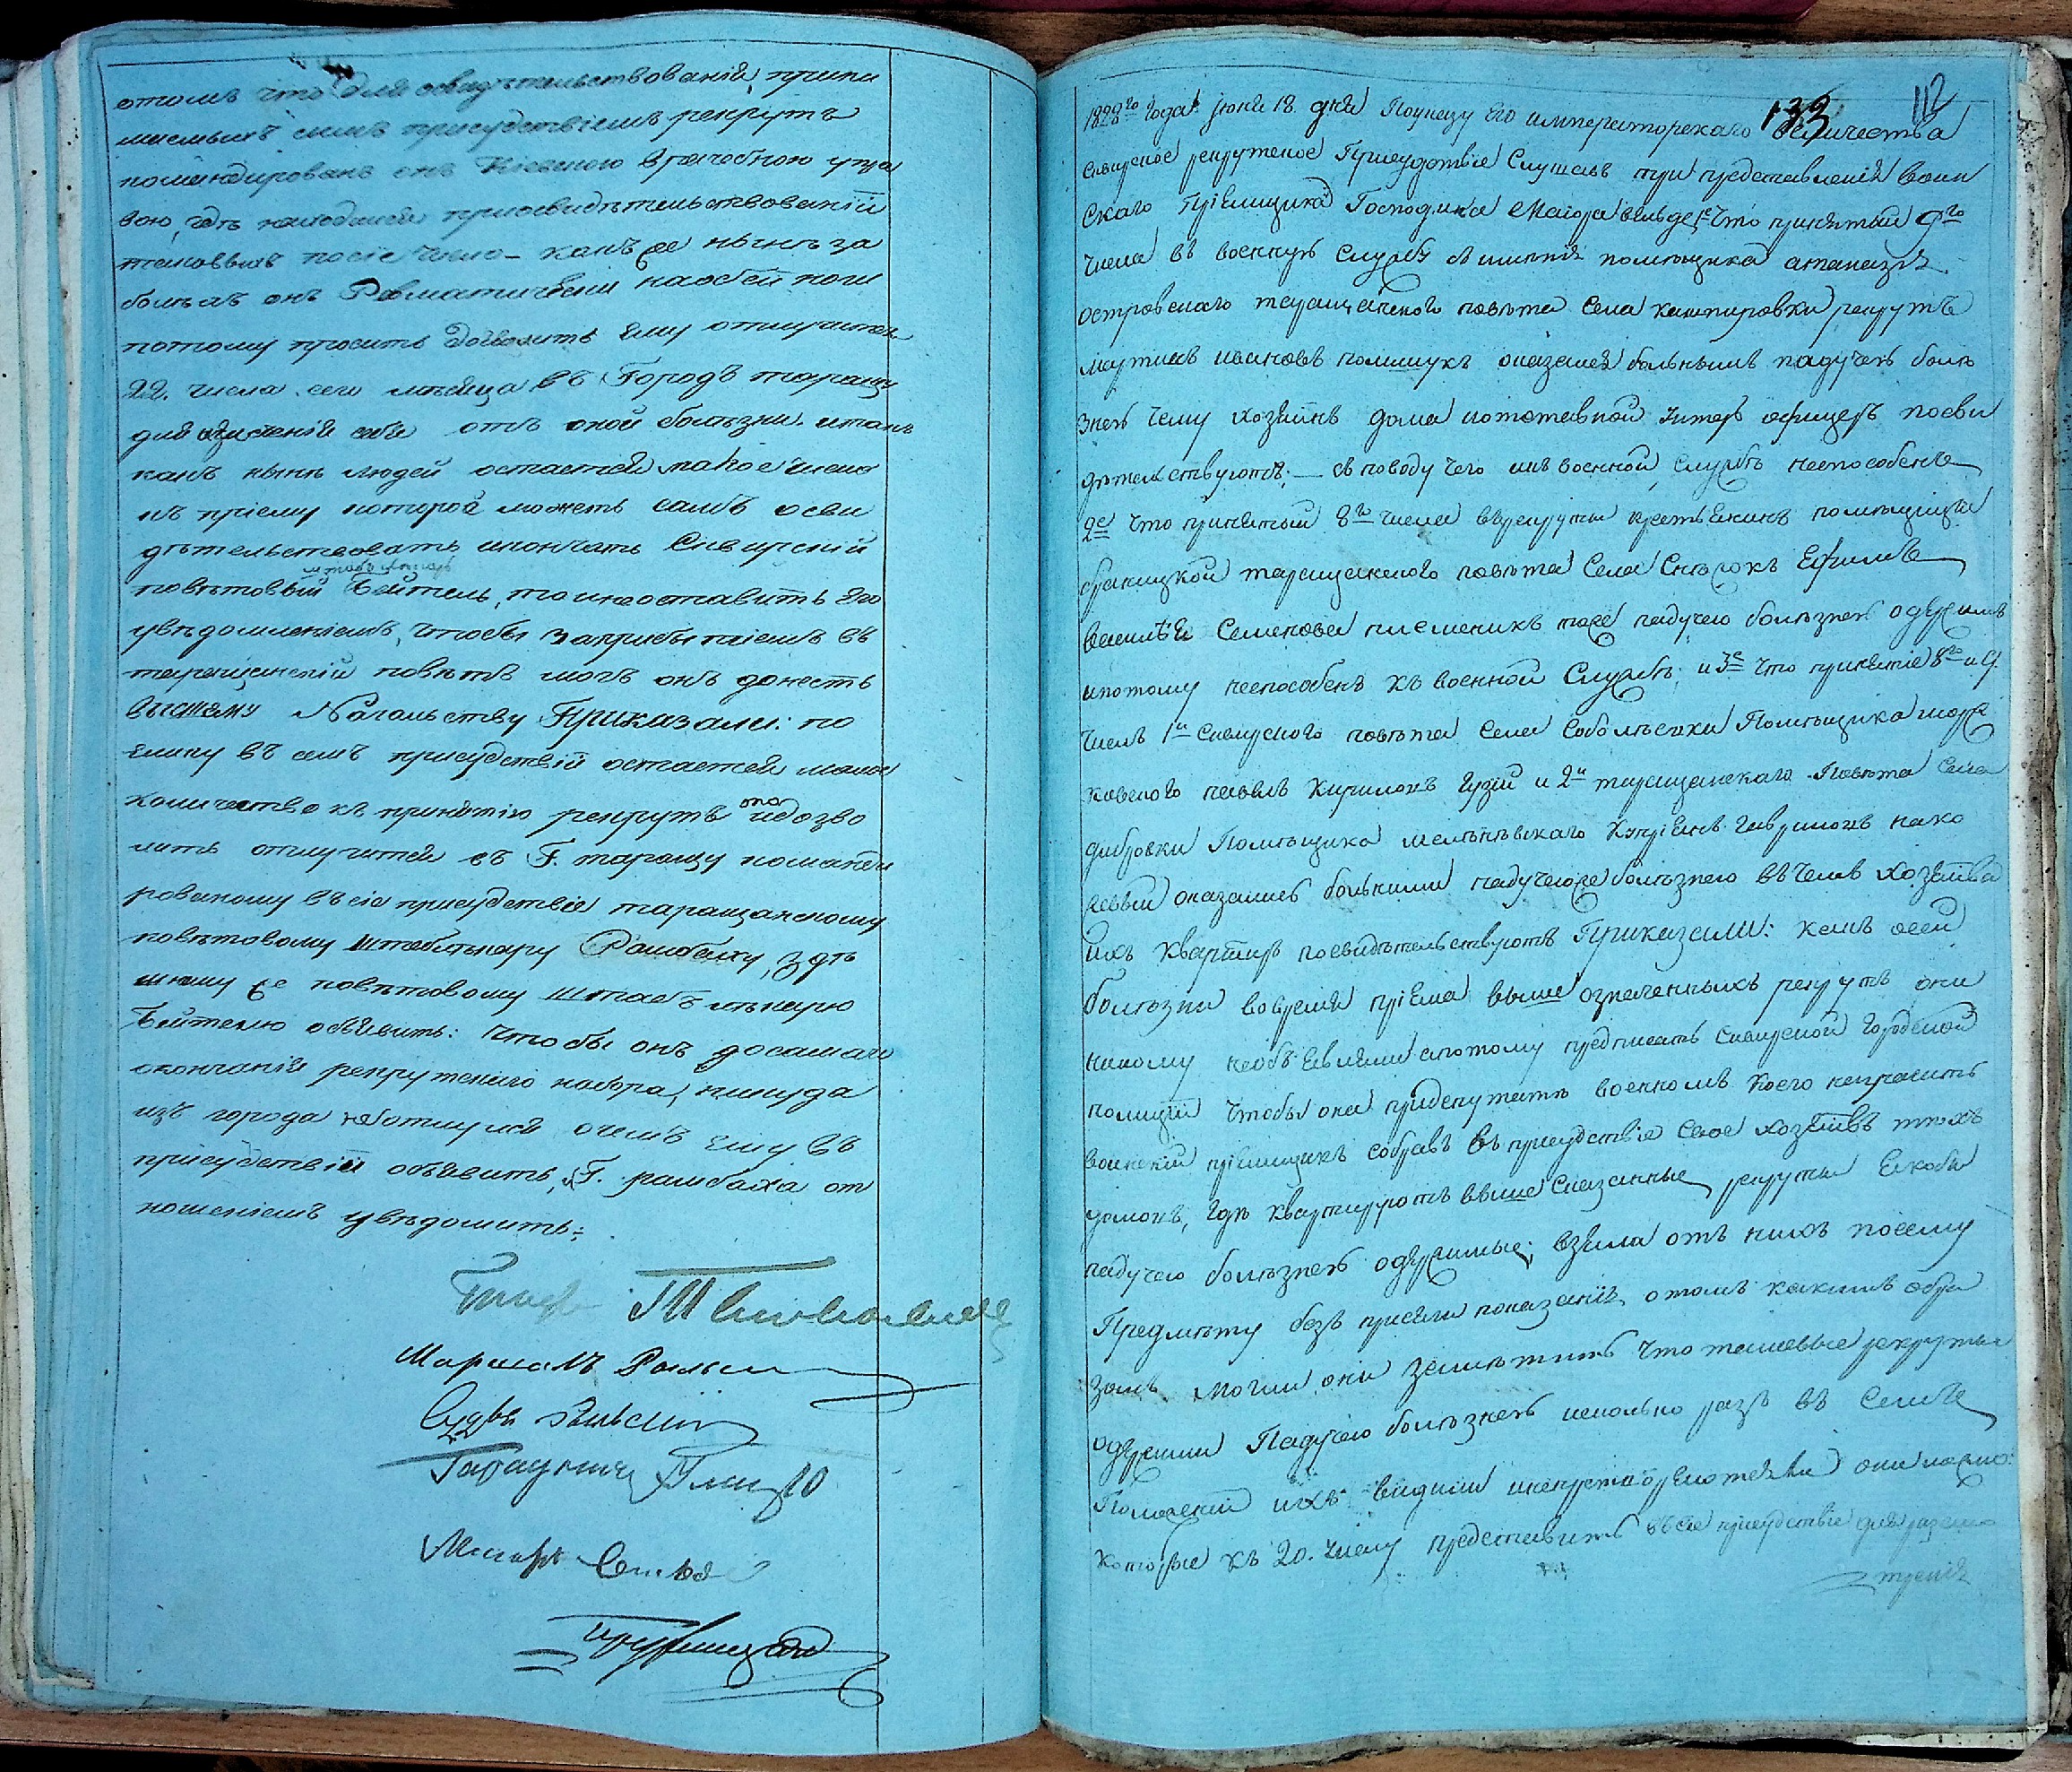 отомъ что для освидѣтельствованій, прини
маемыхъ симъ присудствіемъ рекрутъ
командированъ онъ Кіевскою врачебною упра
вою, гдѣ находился приосвидѣтельствованій
таковыхъ посіе число – какъ же нынѣ за
болѣлъ онъ Ревматическій наобей ноги
потому проситъ дозволить ему отлучится
22. числа сего мѣсяца въ Городъ таращу
для излеченія себя отъ оной болѣзни. итакъ
какъ нынѣ людей остается малое число
къ пріему которой можетъ самъ осви
дѣтельствовать икончать Сквирскій
штабълѣкарь
повѣтовый Бейтель, то инеоставить его
увѣдомленіемъ, чтобы заприбытіемъ въ
таращанскій повѣтъ могъ онъ донесть
вышшему Началству Приказали: по
елику въ семъ присудствій остается малое
количество къ принятію рекрутъ то идозво
лить отлучится въ Г. таращу команди
рованому въсіе присудствіе таращанскому
повѣтовому штаблѣкару Рамбаху, здѣ
шнему же повѣтовому штабъ лѣкарю
Бейтелю объявить: чтобы онъ досамаго
окончанія рекрутскаго набора, никуда
изъ города неотлучился очемъ ему въ
присудствій объявить, а Г. рамбаха от
ношеніемъ увѣдомить:
Маршалъ
Судья
Маіоръ
133 112
1828го года іюня 18 дня Поуказу Его императорскаго величества
Сквирское рекрутское Присудствіе Слушавъ при представленій Воин
скаго Пріемщика Господина Маіора 1е что принятый 9го
числа въ военную Службу съ имѣнія помѣщика атаназія
островскаго таращанского повѣта Села кашперовки рекрутъ
мартинъ ивановъ полищукъ оказался больнымъ падучею болѣ
знею чему хозяинъ дома икоставной унтеръ офицеръ посви
дѣтельствуютъ; – споводу чего къ военной службѣ неспособенъ
2е что принятый 8го числа въ рекруты крестьянинъ помѣщицы
браницкой таращанского повѣта Села Снѣжокъ Ефимъ
Семенова племеникъ тоже падучею болѣзнею одержимъ
ипотому неспособенъ къ военной Службѣ; и 3е что принятіе 8го и 9.
числъ 1й Сквирского повѣта Села Соболѣвки Помѣщика
павелъ Кириловъ Гузій и 2й таращанскаго Повѣта села
дибровки Помѣщика Кипріянъ Гавриловъ
оказались больними падучеюже болѣзнею въ чемъ хозяева
ихъ квартиръ посвидѣтельствуютъ Приказали: какъ осей
болѣзни вовремя пріема выше означенныхъ рекрутъ они
никому необъявляли апотому предписать Сквирской Городской
полиціи чтобы она придепутатѣ военномъ коего
воинскій пріемщикъ собравъ въ присудствіе свое хозяевъ тѣхъ
домовъ, гдѣ квартируютъ выше сказанные рекруты якобы
падучею болѣзнею одержимые; взяла отъ нихъ посему
Предмѣту безъ присяги показанія отомъ какимъ обра
зомъ могли они замѣтить что таковые рекруты
одержими Падучею болѣзнею исколько разъ въ
Положеній ихъ видили они
которые къ 20. числу представить въ сіе присудствіе для разсмо
тренія